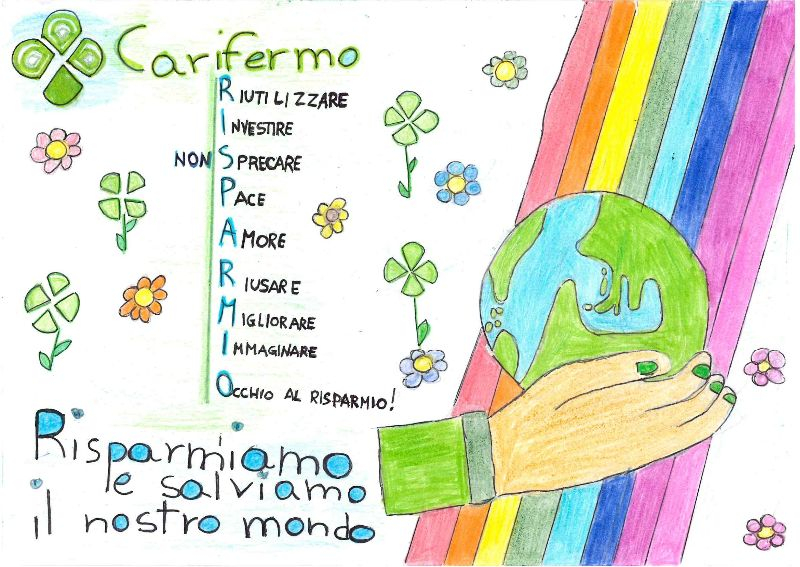 Carifermo
RIUTILIZZARE
INVESTIRE
NON SPRECARE
PACE
AMORE
RIUSARE
MIGLIORARE
IMMAGINARE
OCCHIO AL RISPARMIO!
Risparmiamo
e salviamo
il nostro mondo